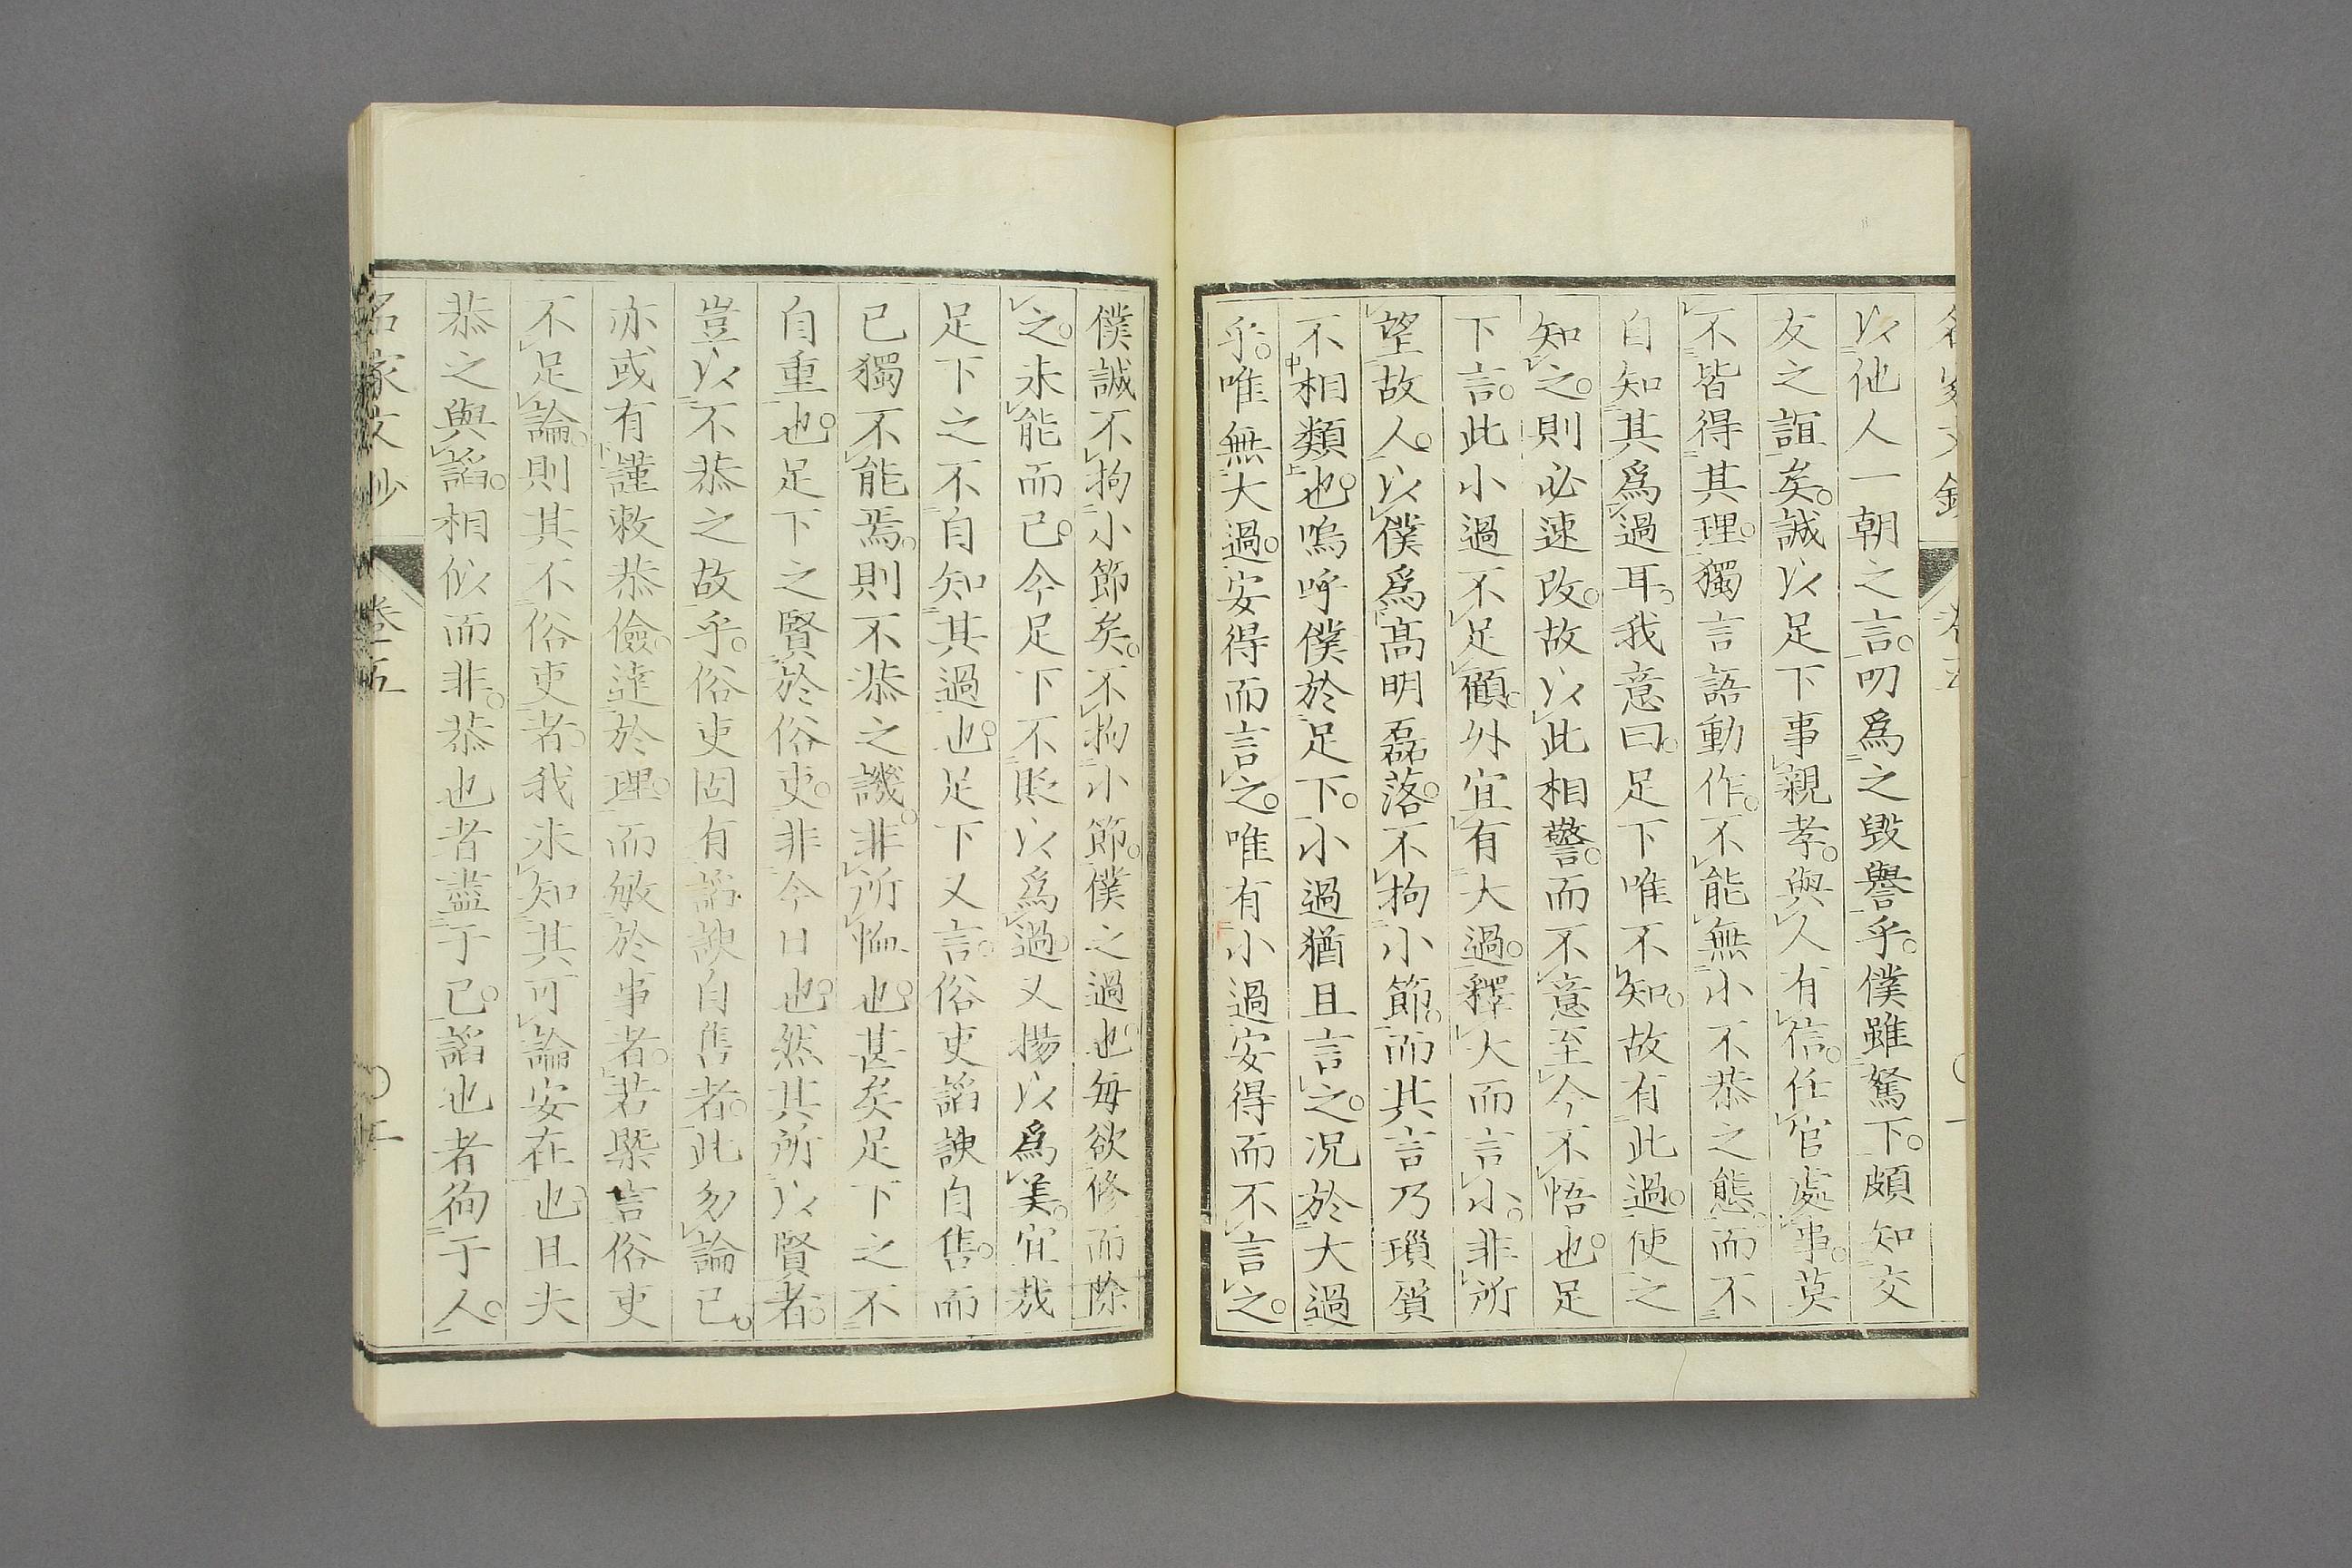 以他人一朝之言。叨爲之毀譽乎。僕雖駑下。頗知交
友之誼矣。誠以足下事親孝。與人有信。任官處事。莫
不皆得其理。獨言語動作。不能無小不恭之態。而不
自知其爲過耳。我意曰。足下唯不知。故有此過。使之
知之。則必速改。故以此相警。而不意至今不悟也。足
下言。此小過不足顧。外宜有大過。釋大而言小。非所
望故人。以僕爲高明磊落。不拘小節。而其言乃瑣屑
不相類也。嗚呼僕於足下。小過猶且言之。况於大過
乎。唯無大過。安得而言之。唯有小過安得而不言之。
僕誠不拘小節矣。不拘小節。僕之過也。每欲修而除
之。未能而已。今足下不貶以爲過。又揚以爲美。宜哉
足下之不自知其過也。足下又言。俗吏諂諛自售。而
已獨不能焉。則不恭之譏。非所恤也。甚矣足下之不
自重也。足下之賢於俗吏。非今日也。然其所以賢者。
豈以不恭之故乎。俗吏固有諂諛自售者。此勿論已。
亦或有謹敕恭儉。達於理。而敏於事者。若槩言俗吏
不足論。則其不俗吏者。我未知其可論安在也。且夫
恭之與諂。相似而非。恭也者盡于已。諂也者徇于人。
名家文抄 卷五